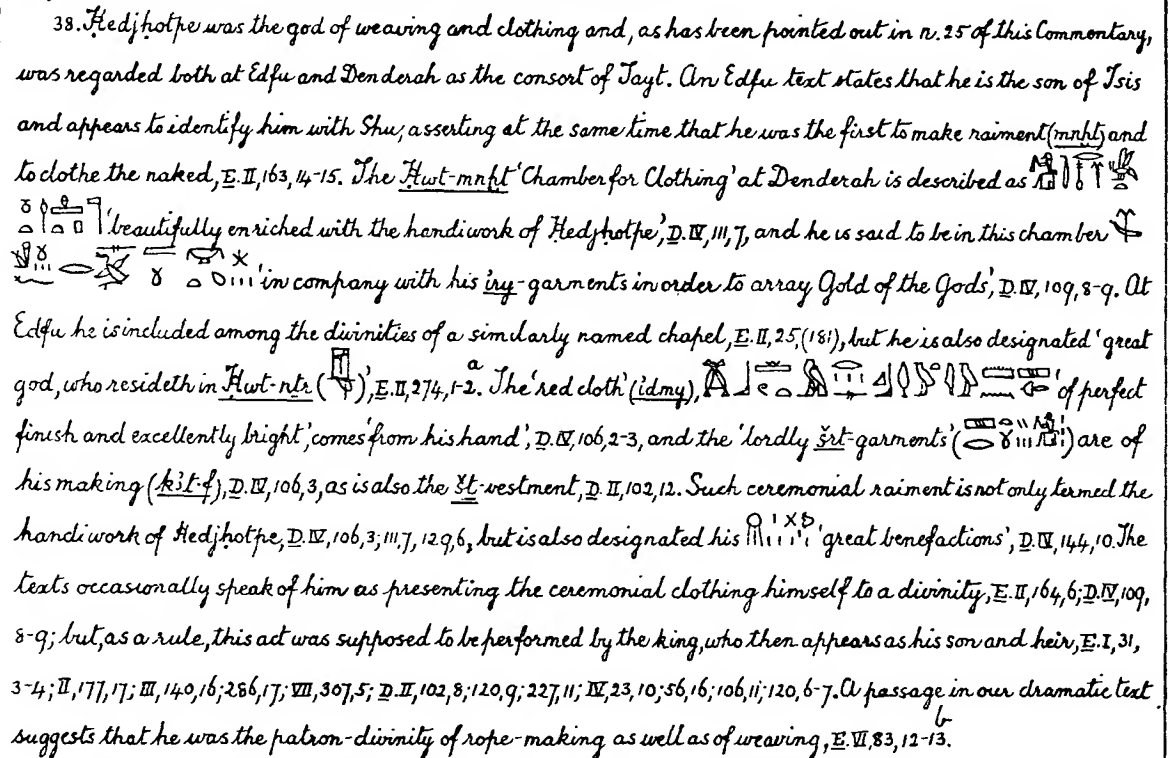 38. Ḥedjḥotpe was the god of weaving and clothing and, as has been pointed out in n. 25 of this Commentary,
was regarded both at Edfu and Denderah as the consort of Tayt. An Edfu text states that he is the son of Isis
and appears to identify him with Shu, asserting at the same time that he was the first to make raiment (mnḫt) and
to clothe the naked, E. II, 163, 14-15. The Ḥwt-mnḫt 'Chamber for Clothing' at Denderah is described as
'beautifully enriched with the handiwork of Ḥedjḥotpe', D. IV, 111, 7, and he is said to be in this chamber
'in company with his iry-garments in order to array Gold of the Gods', D. IV, 109, 8-9. At
Edfu he is included among the divinities of a similarly named chapel, E. II, 25, (181), but he is also designated 'great
god, who resideth in Ḥwt-nṯr ( )', E. II, 274, 1-2.ᵃ The 'red cloth' (idmy), 'of perfect
finish and excellently bright', comes 'from his hand', D. IV, 106, 2-3, and the 'lordly šrt-garments' ( ) are of
his making (kꜣt·f), D. IV, 106, 3, as is also the št-vestment, D. II, 102, 12. Such ceremonial raiment is not only termed the
handiwork of Hedjḥotpe, D. IV, 106, 3; 111, 7, 129, 6, but is also designated his 'great benefactions', D. IV, 144, 10. The
texts occasionally speak of him as presenting the ceremonial clothing himself to a divinity, E. II, 164, 6; D. IV, 109,
8-9; but, as a rule, this act was supposed to be performed by the king, who then appears as his son and heir, E. I, 31,
3-4; II, 177, 17; III, 140, 16; 286, 17; VII, 307, 5; D. II, 102, 8; 120, 9; 227, 11; IV, 23, 10; 56, 16; 106, 11; 120, 6-7. A passage in our dramatic text
suggests that he was the patron-divinity of rope-making as well as of weaving, E. VI, 83, 12-13.ᵇ